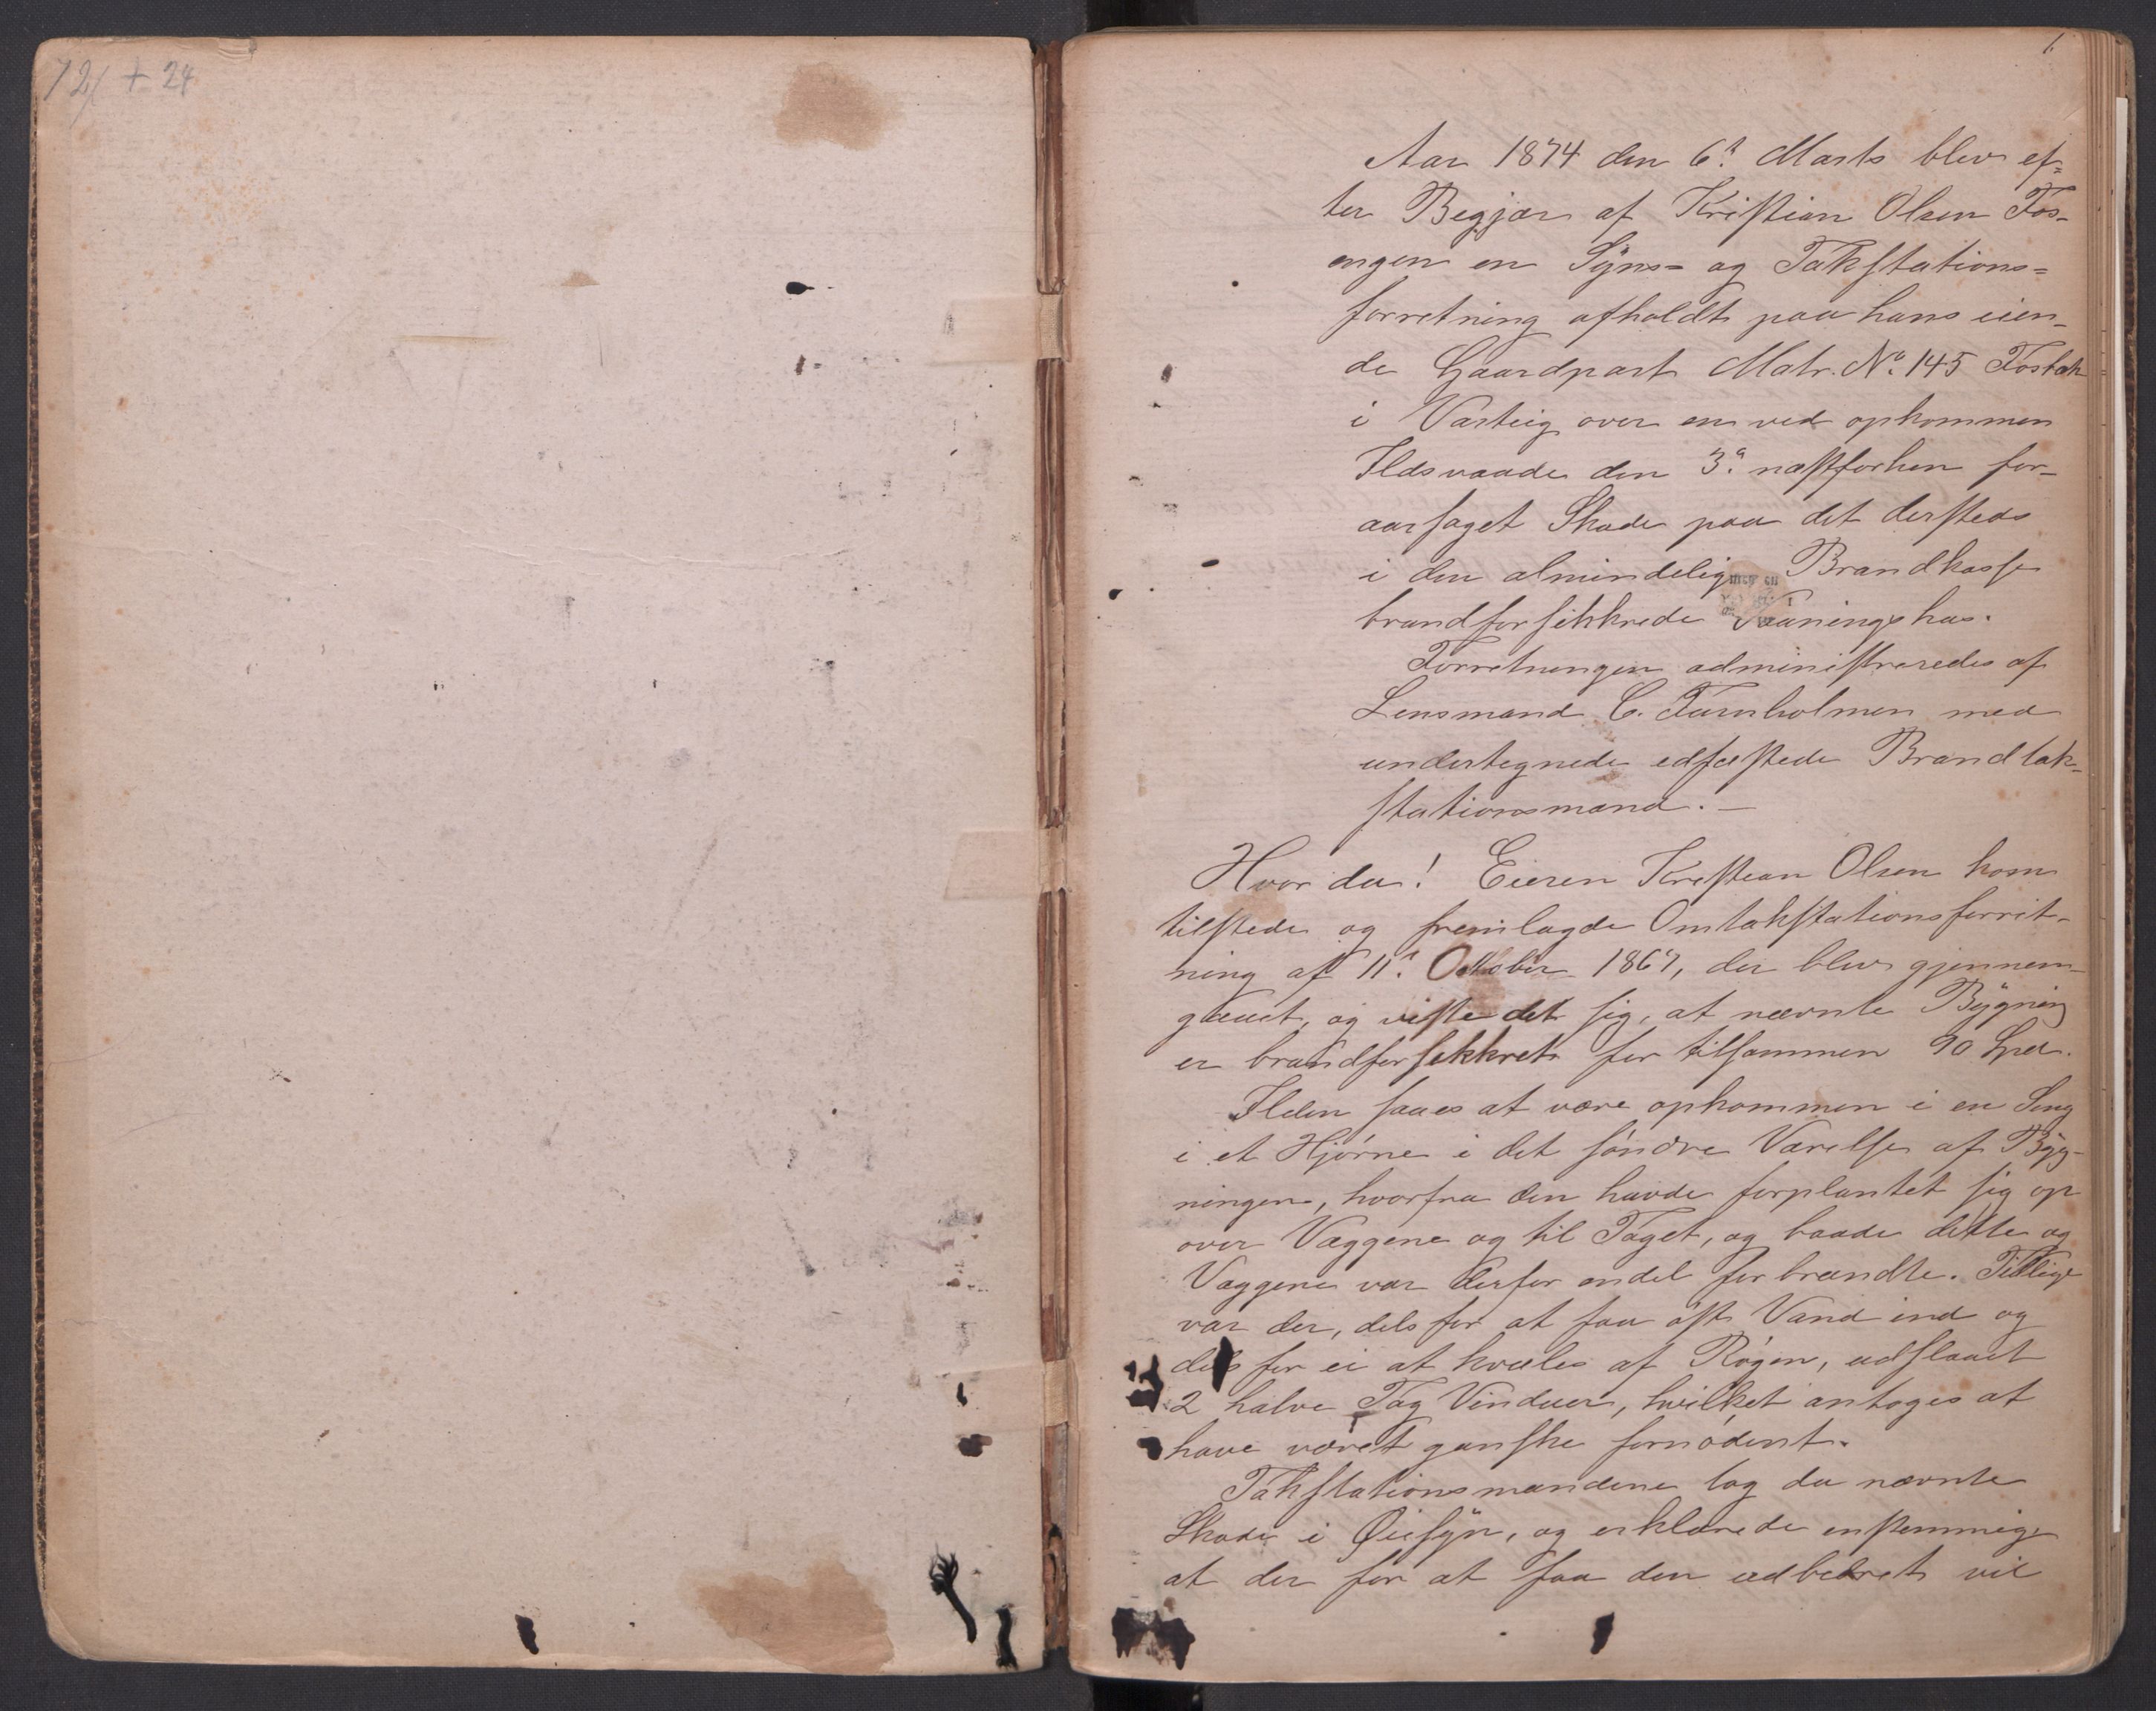 72/ + 24
1.
Aar 1874 den 6te Marts blev ef=
ter Begjær af Kristian Olsen Fos-
engen en Syns= og Takstations=
forretning afholdt paa hans eien-
de Gaardpart Matr. No. 145 Fosbæk
i Varteig over en ved opkommen
Ildsvaade den 3de næstforhen for-
aarsaget Skade paa det dersteds
i den almindelige Brandkasse
brandforsikkrede Vaaningshus.
Forretningen administreredes af
Lensmand C. Furuholmen med
undertegnede edfæstede Brandtak-
stationsmænd. —
Hvorda! Eieren Kristian Olsen kom
tilstede og fremlagde Omtakstationsforret-
ning af 11te Oktober 1867, der blev gjennem-
gaaet, og viste det sig, at nævnte Bygning
er brandforsikkret for tilsammen 90 Spd.
Ilden saaes at være opkommen i en Seng
i et Hjørne i det søndre Værelse af Byg-
ningen, hvorfra den havde forplantet sig op
over Væggene og til Taget, og baade dette og
Væggene var derfor endel forbrændte. Tillige
var der, dels for at faa øst Vand ind og
dels for ei at kvæles af Røgen, udslaaet
2 halve Fag Vinduer, hvilket antoges at
have været ganske fornødent.
Takstationsmændene tog da nævnte
Skade i Øiesyn, og erklærede enstemmig
at der for at faa den udbedret vil